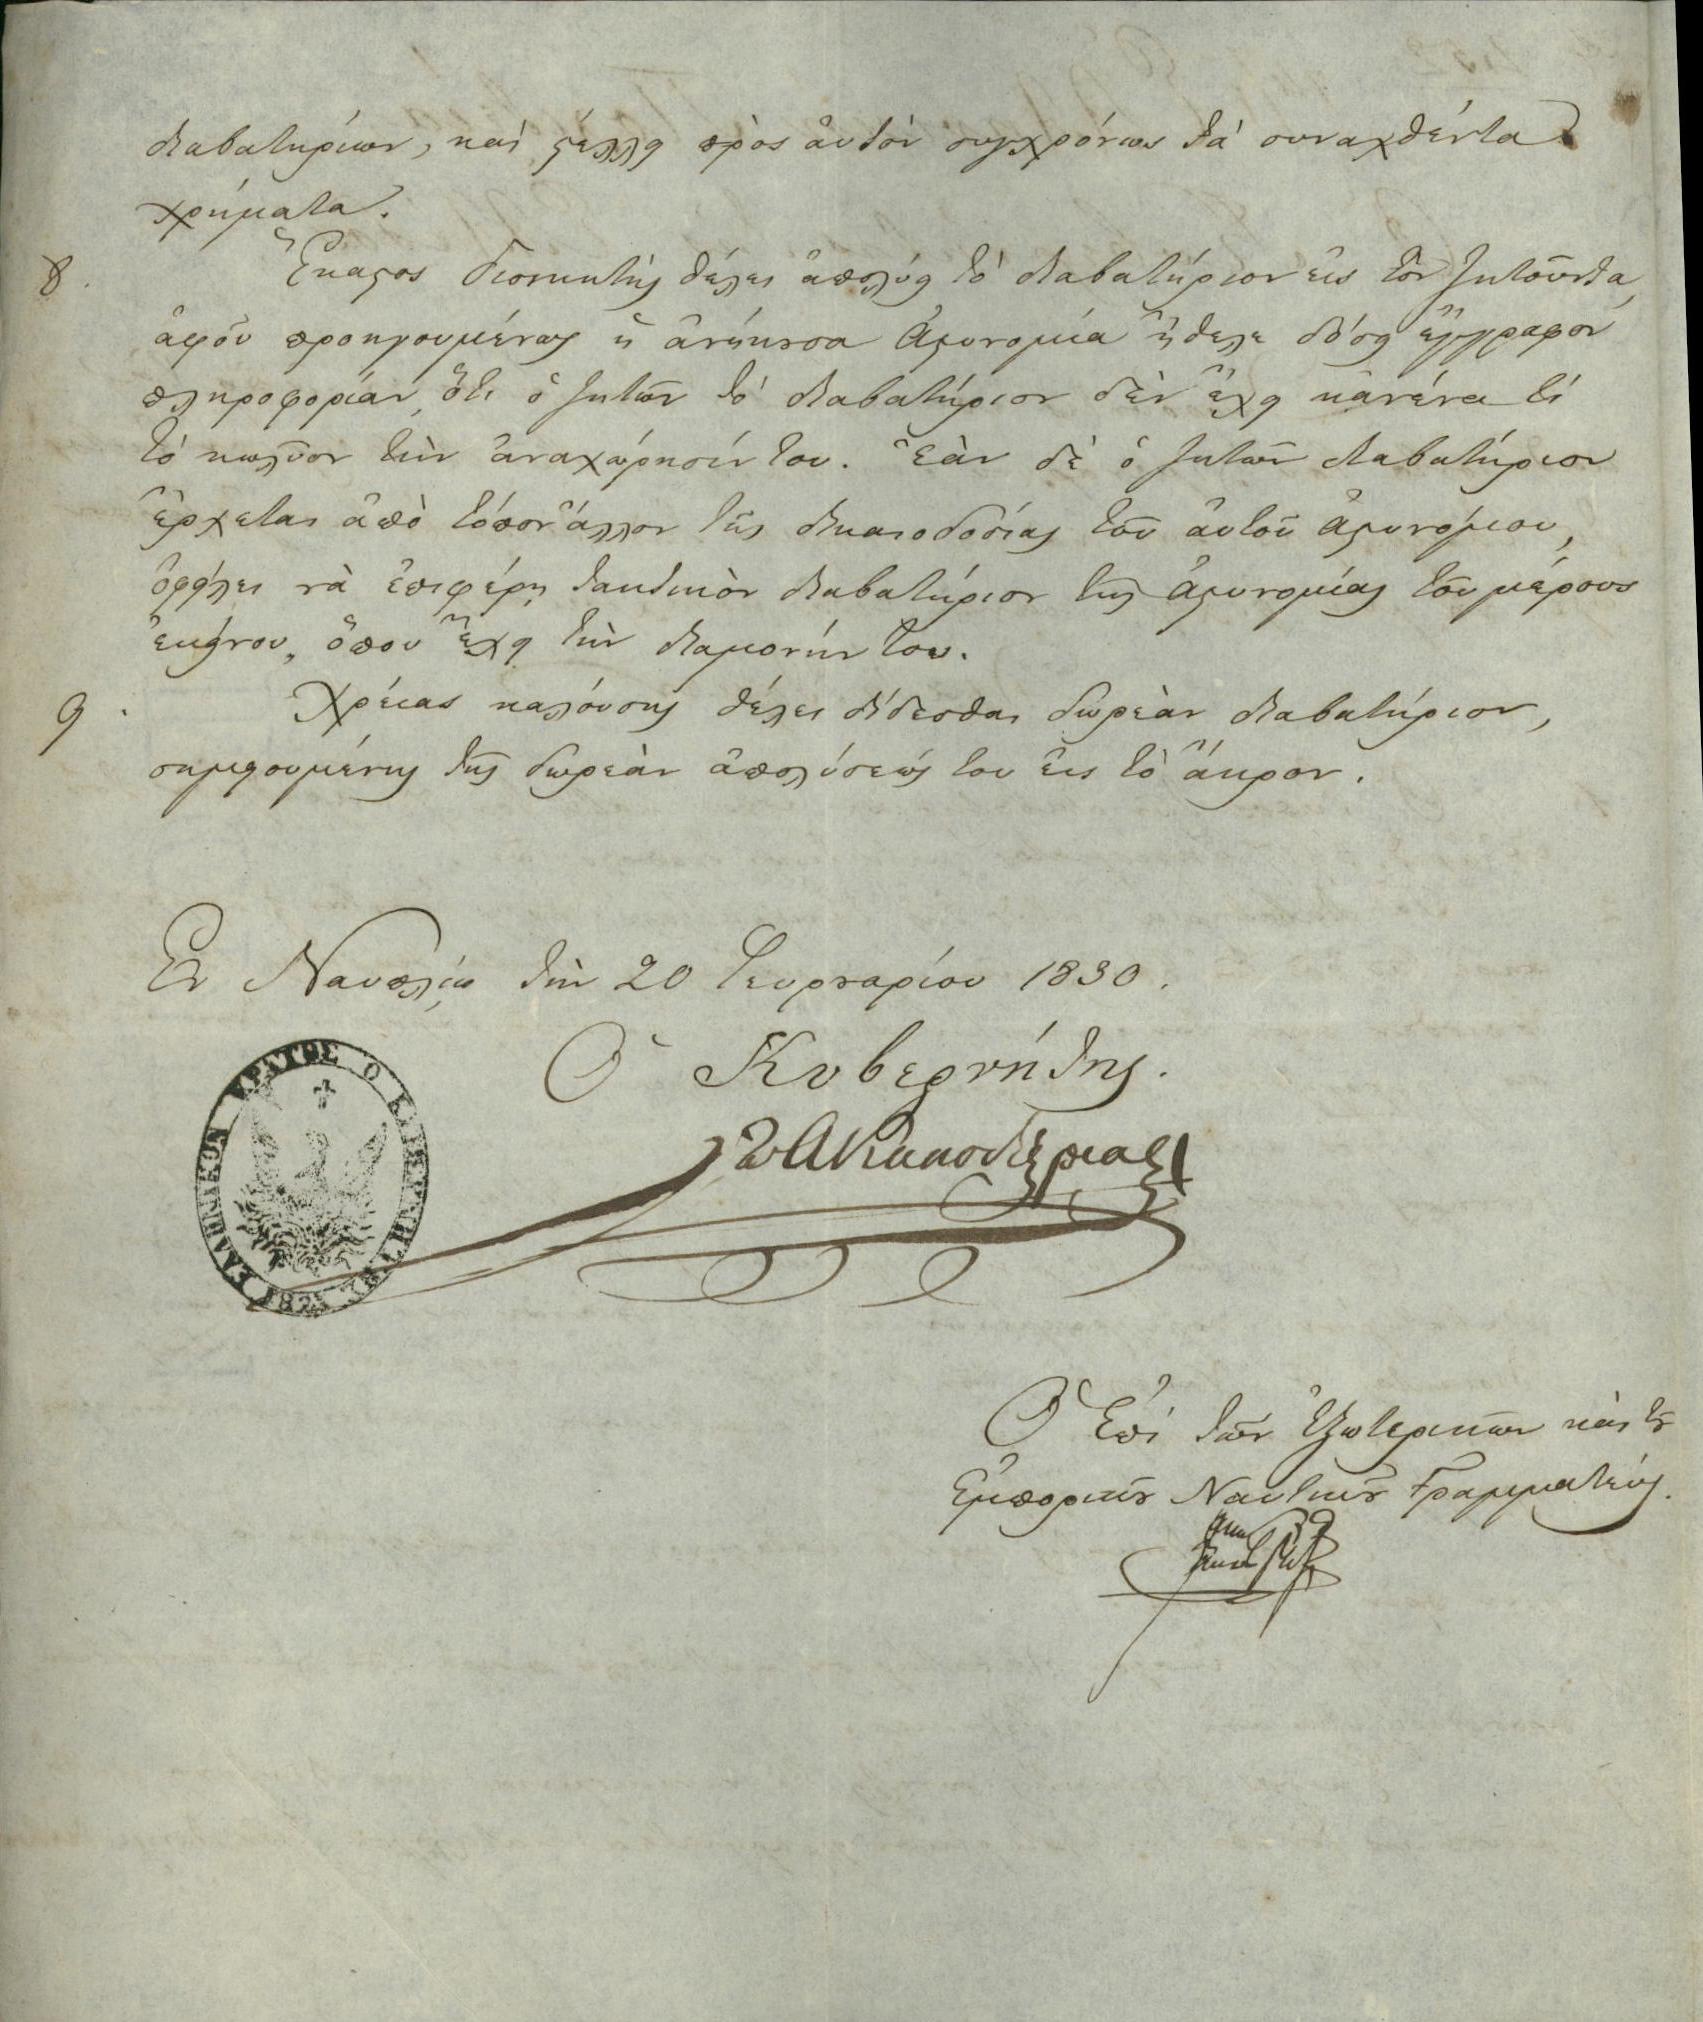 διαβατηρίων, καὶ στέλλῃ πρὸς ἀυτὸν συγχρόνως τὰ συναχθέντα
χρήματα.
8. Ἕκαστος διοικητὴς θέλει ἀπολύῃ τὸ διαβατήριον εἰς τὸν ζητοῦντα,
ἀφοῦ προηγουμένως ἡ ἀνήκουσα Ἀστυνομία ἤθελε δόσῃ ἔγγραφον
πληροφορίαν, ὅτι ὁ ζητῶν τὸ διαβατήριον δὲν ἔχῃ κανένα τί
τὸ κωλῦον τὴν ἀναχώρησίν του. Ἐὰν δὲ ὁ ζητῶν διαβατήριον
ἔρχεται ἀπὸ τόπον ἄλλον τῆς δικαιοδοσίας τοῦ ἀυτοῦ ἀστυνόμου,
ὀφείλει νὰ ἐπιφέρῃ τακτικὸν διαβατήριον τῆς ἀστυνομίας τοῦ μέρους
ἐκείνου, ὅπου ἔχῃ τὴν διαμονήν του.
9. Χρείας καλούσης θέλει δίδεσθαι δωρεὰν διαβατήριον,
σημειουμένης τῆς δωρεὰν ἀπολύσεώς του εἰς τὸ ἄκρον.
Ἐν Ναυπλίῳ τὴν 20 Φευρουαρίου 1830.
Ὁ Κυβερνήτης.
ΙΑ Καποδίστριας
ΕΛΛΗΝΙΚΟΝ ΚΡΑΤΟΣ Ο ΚΥΒΕΡΝΗΤΗΣ
Ὁ Ἐπὶ τῶν Ἐξωτερικῶν καὶ τῆς
Ἐμπορικῆς Ναυτικῆς Γραμματεύς.